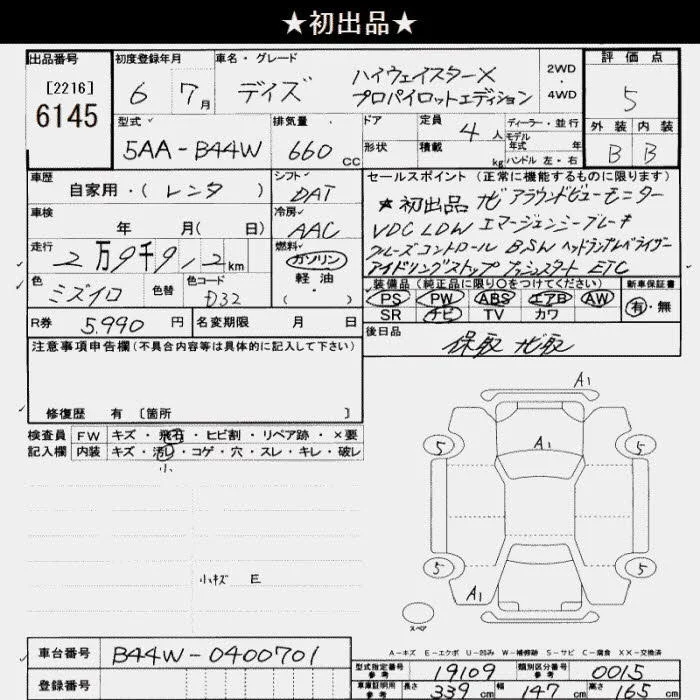 ★初出品★
出品番号 初度登録年月 車名・グレード 評価点
[2216]
6145
6 7月 デイズ ハイウェイスターX
プロパイロットエディション
2WD
・
4WD
5
型式 排気量 ドア 定員 4人 ディーラー・並行
モデル
年式 年
形状 積載 kg ハンドル 左・右
外装 内装
5AA-B44W 660cc
B B
車歴 シフト セールスポイント (正常に機能するものに限ります)
自家用・(レンタ) DAT
★初出品 ナビ アラウンドビューモニター
車検 冷房
年 月(日) AAC
VDC LDW エマージェンシーブレーキ
走行 燃料
2万9千9,2km ガソリン
クルーズコントロール BSW ヘッドランプレベライザー
軽油
アイドリングストップ プッシュスタート ETC
色 色替 色コード (・)
ミズイロ D32
装備品 (純正品に限り○をつけてください) 新車保証書
PS PW ABS エアB AW 有・無
SR ナビ TV カワ
R券 5.990円 名変期限 月 日
後日品
保取 ナビ取
注意事項申告欄(不具合内容等は具体的に記入して下さい)
修復歴 有 〔箇所 〕
検査員 FW キズ・飛石・ヒビ割・リペア跡・×要
記入欄 内装 キズ・汚れ・コゲ・穴・スレ・キレ・破レ
小
A1
5 A1 5
小キズ E
5 5
A1
スペア
A-キズ E-エクボ U-凹み W-補修跡 S-サビ C-腐食 XX-交換済
車台番号 B44W-0400701
登録番号
型式指定番号 参考 19109 類別区分番号 参考 0015
車庫証明用 参考 長さ 339cm 幅 147cm 高さ 65cm